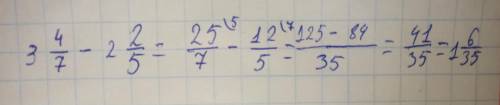 3 4/7 - 2 2/5 = 25/7 \5 - 12/5 \7 = 125 - 84/35 = 41/35 = 1 6/35